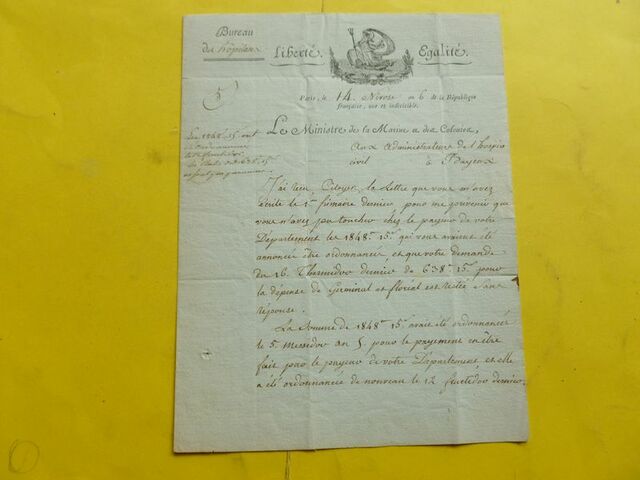 Bureau
des hôpitaux
Liberté. Egalité.
Paris, le 14. Nivose an 6 de la République
française, une et indivisible.
Les 1848.# 15.s ont
été
Le Ministre de la Marine et des Colonies,
Aux Administrateurs de l'hospice
civil à Bayeux
J'ai reçu, Citoyens, la Lettre que vous m'avez
écrite le 1er frimaire dernier, pour me prévenir que
vous n'avez pu toucher chez le payeur de votre
Département les 1848.# 15.s qui vous avaient été
annoncés être ordonnancés, et que votre demande
du 16. Thermidor dernier de 638.# 15.s pour
la dépense de Germinal et floréal est restée sans
réponse.
La Somme de 1848.# 15.s avait été ordonnancée
le 5. Messidor An 5. pour le payement en être
fait par le payeur de votre Département, et elle
a été ordonnancée de nouveau le 12 fructidor dernier.